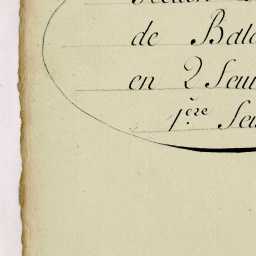 de Bala
en 2 Feuil
1ère Feu